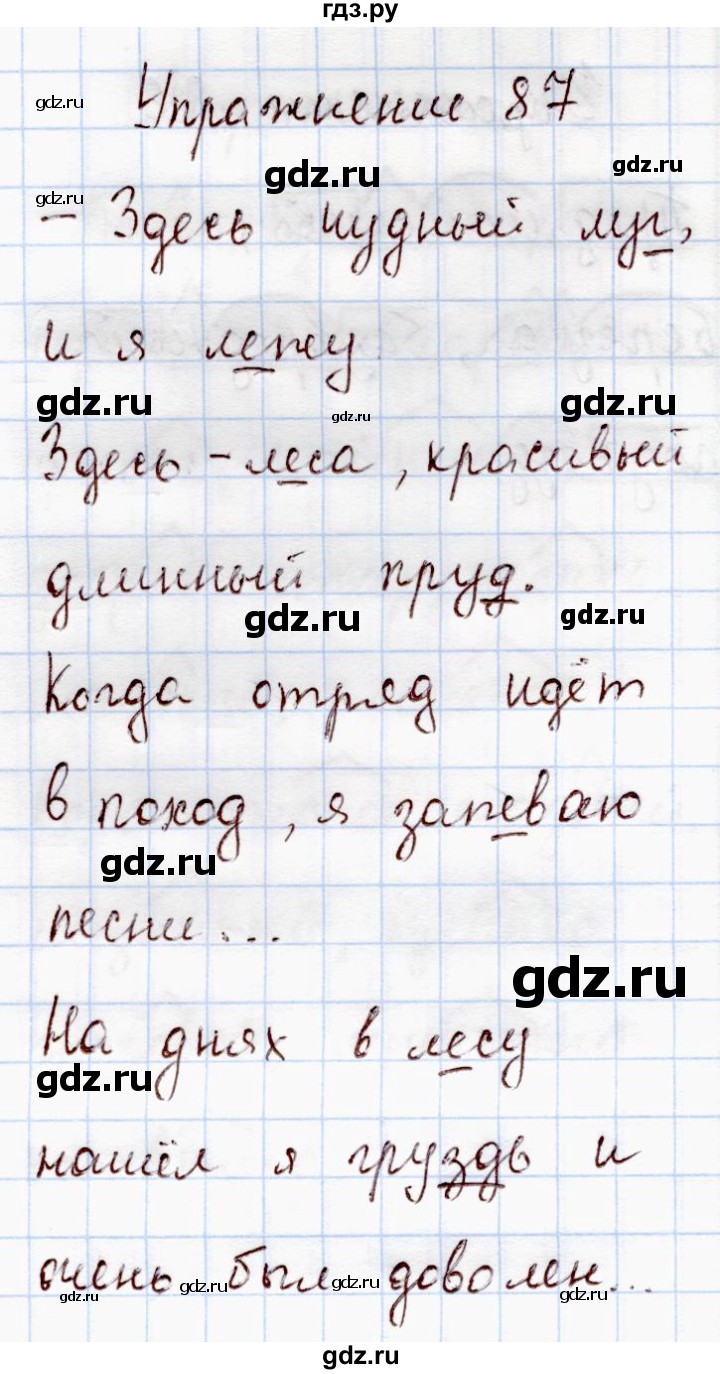 гдз.ру
gdz.ru
Упражнение 87
gdz.ru
gdz.ru
gdz.ru
– Здесь чудный луг,
и я лежу
gdz.ru
gdz.ru
gdz.ru
Здесь – леса, красивый
длинный пруд.
gdz.ru
gdz.ru
Когда отряд идёт
в поход, я запеваю
gdz.ru
песни...
gdz.ru
На днях в лесу
gdz.ru
нашёл я груздь и
очень был доволен...
gdz.ru
gdz.ru
gdz.ru
gdz.ru
gdz.ru